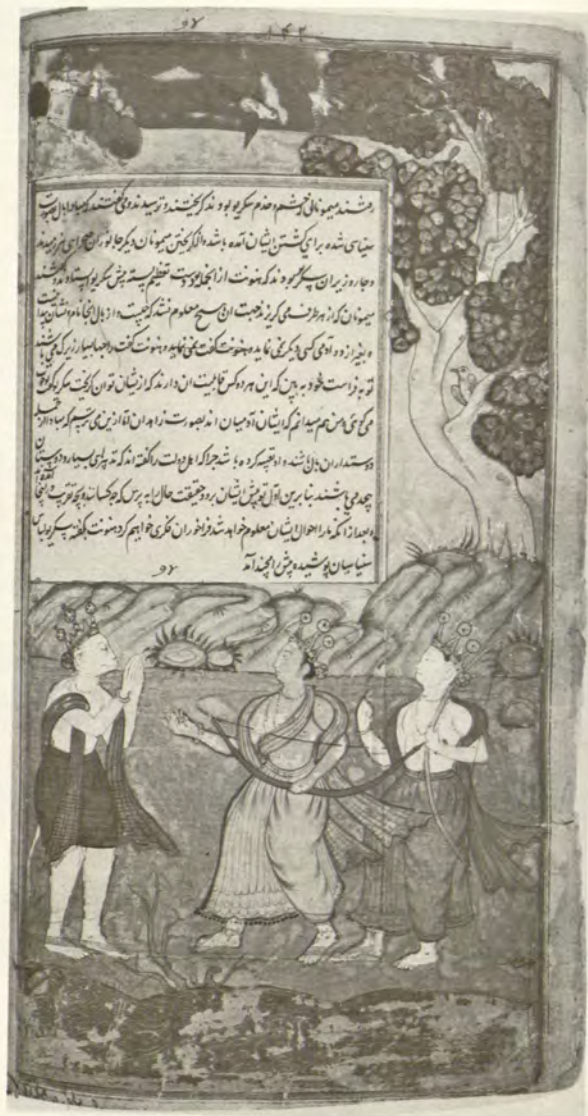 ۱۴۲
رفتند میمونانی که خشم و خدم سگریو بودند گریختند و ترسیدند و می گفتند که مبادا بال بصورت
سنیاسی شده برای کشتن ایشان آمده باشد و از گریختن میمونان دیگر جانوران صحرای هم رمیدند
و چار وزیران سگریو بودند که هنونت از آنجمله بود دست تعظیم بسته پیش سگریو ایستاده گفتند
میمونان که از هر طرف می گریزند جهت آن هیچ معلوم نشد که چیست و از بال اینجا نام و نشان پیدا
بغیر از دو آدمی کسی دیگر نمی نماید هنونت گفت راجها بسیار زیرک می باشند
تو به فراست خود به بین که این هر دو کس قابلیت آن دارند که از ایشان توان گریخت سگریو گفت
می گوئی و من هم میدانم که ایشان آدمیان اند بصورت زاهدان اما ازین می ترسم که مبادا از جمله
دوستداران بال باشند و اوتعبیه کرده باشد چرا که اهل دولت را گفته اند که تدبیرهای بسیار و دوستان
بیحد می باشند بنابرین اول تو پیش ایشان برو و حقیقت حال ایشان به پرس که چه کسانند و بچه تقریب
و بعد از آنکه ما را احوال ایشان معلوم خواهد شد فراخور آن فکری خواهیم کرد هنونت بگفته سگریو لباس
سنیاسیان پوشیده پیش رامچند آمد